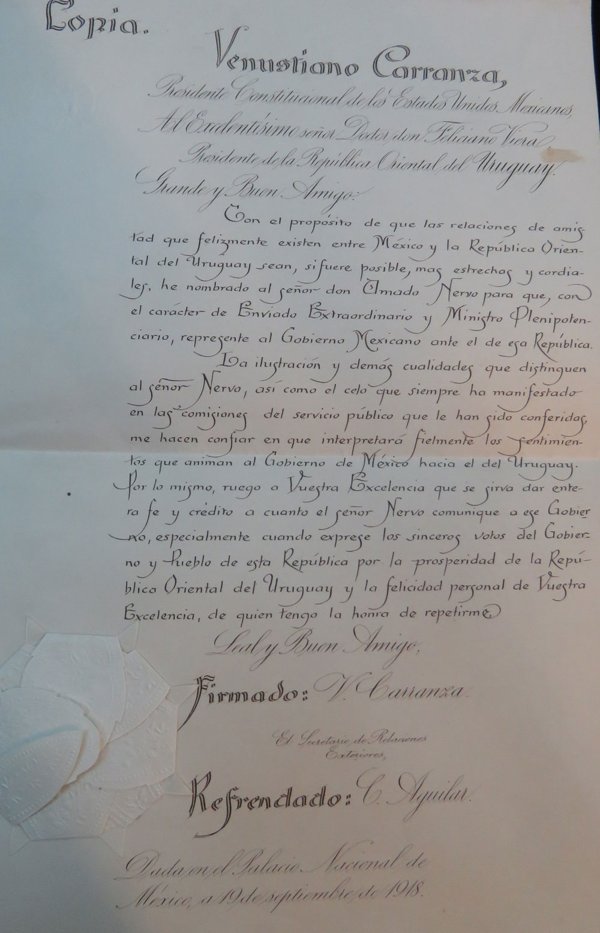 Copia.
Venustiano Carranza,
Presidente Constitucional de los Estados Unidos Mexicanos,
Al Excelentísimo señor Doctor don Feliciano Viera
Presidente de la República Oriental del Uruguay.
Grande y Buen Amigo:
Con el propósito de que las relaciones de amis-
tad que felizmente existen entre México y la República Orien-
tal del Uruguay sean, si fuere posible, mas estrechas y cordia-
les. he nombrado al señor don Amado Nervo para que, con
el carácter de Enviado Extraordinario y Ministro Plenipoten-
ciario, represente al Gobierno Mexicano ante el de esa República.
La ilustración y demás cualidades que distinguen
al señor Nervo, así como el celo que siempre ha manifestado
en las comisiones del servicio público que le han sido conferidas,
me hacen confiar en que interpretará fielmente los sentimien-
tos que animan al Gobierno de México hacia el del Uruguay.
Por lo mismo, ruego a Vuestra Excelencia que se sirva dar ente-
ra fe y crédito a cuanto el señor Nervo comunique a ese Gobier
no, especialmente cuando exprese los sinceros votos del Gobier-
no y Pueblo de esta República por la prosperidad de la Repú-
blica Oriental del Uruguay y la felicidad personal de Vuestra
Excelencia, de quien tengo la honra de repetirme
Leal y Buen Amigo,
Firmado: V. Carranza.
El Secretario de Relaciones
Exteriores,
Refrendado: C. Aguilar.
Dada en el Palacio Nacional de
México, a 19 de septiembre, de 1918.